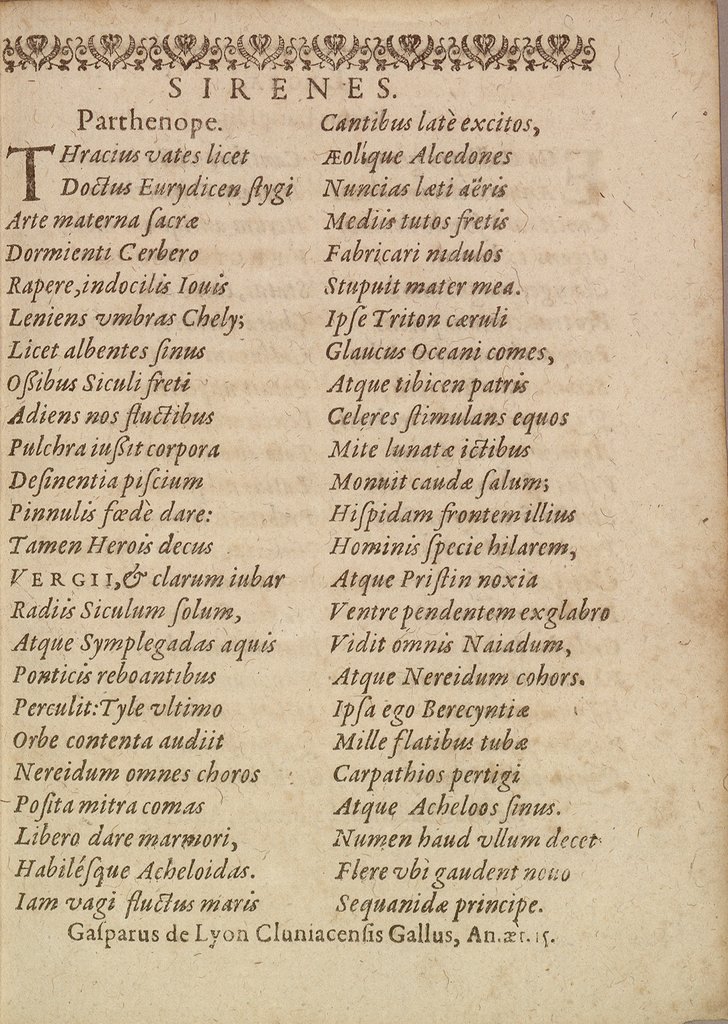 SIRENES.
Parthenope.
THracius vates licet
Doctus Eurydicen ſtygi
Arte materna ſacræ
Dormienti Cerbero
Rapere, indocilis Iouis
Leniens vmbras Chely;
Licet albentes ſinus
Oßibus Siculi freti
Adiens nos fluctibus
Pulchra iußit corpora
Deſinentia piſcium
Pinnulis fœdè dare:
Tamen Herois decus
VERGII, & clarum iubar
Radiis Siculum ſolum,
Atque Symplegadas aquis
Ponticis reboantibus
Perculit: Tyle vltimo
Orbe contenta audiit
Nereidum omnes choros
Poſita mitra comas
Libero dare marmori,
Habiléſque Acheloidas.
Iam vagi fluctus maris
Cantibus latè excitos,
Æolique Alcedones
Nuncias læti aëris
Mediis tutos fretis
Fabricari nidulos
Stupuit mater mea.
Ipſe Triton cæruli
Glaucus Oceani comes,
Atque tibicen patris
Celeres ſtimulans equos
Mite lunatæ ictibus
Monuit caudæ ſalum;
Hiſpidam frontem illius
Hominis ſpecie hilarem,
Atque Priſtin noxia
Ventre pendentem exglabro
Vidit omnis Naiadum,
Atque Nereidum cohors.
Ipſa ego Berecyntiæ
Mille flatibus tubæ
Carpathios pertigi
Atque Acheloos ſinus.
Numen haud vllum decet
Flere vbi gaudent nouo
Sequanidæ principe.
Gaſparus de Lyon Cluniacenſis Gallus, An. æt. 15.